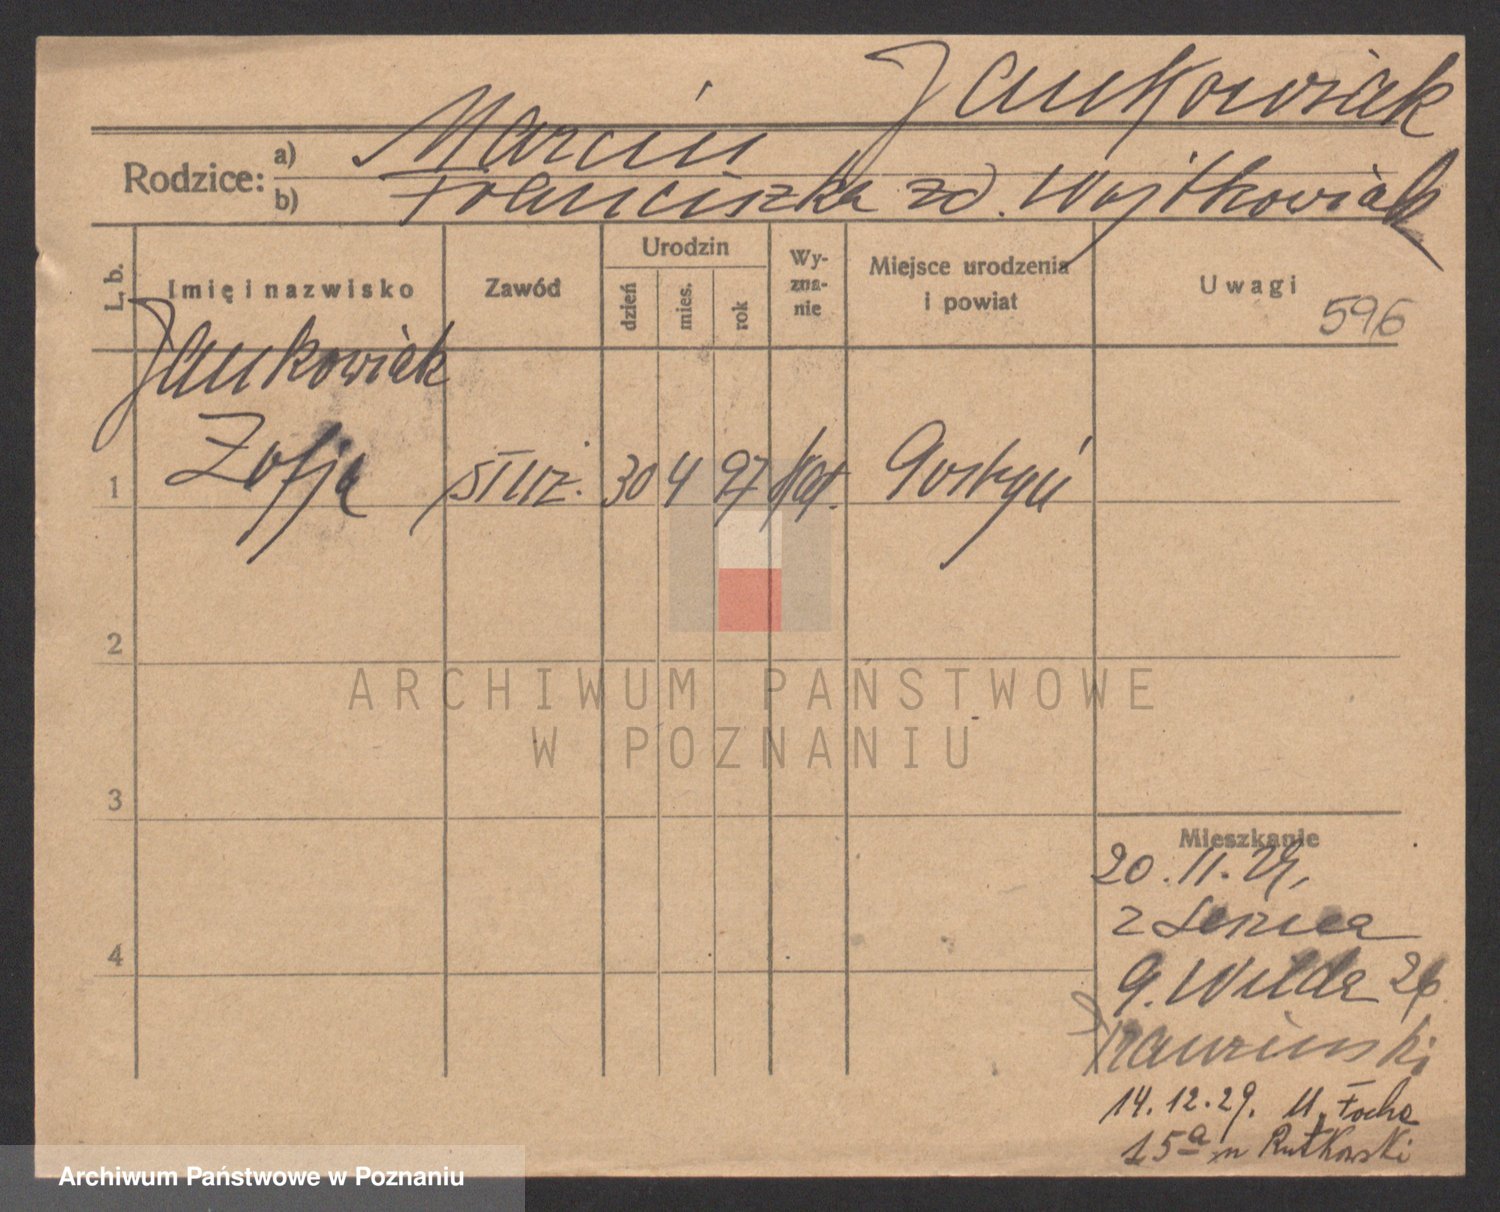 Jankowiak
Rodzice: a) Marcin
b) Franciszka zd. Wojtkowiak
L. b.
Imię i nazwisko
Zawód
Urodzin
dzień
mies.
rok
Wy-
zna-
nie
Miejsce urodzenia
i powiat
Uwagi
596
Jankowiak
Zofja
1
służ. 30 4 97 kat. Gostyń
2
ARCHIWUM PAŃSTWOWE
W POZNANIU
3
4
Mieszkanie
20.11.29,
z Leszna
G. Wilda 26
14.12.29. M. Focha
15a m Rutkowski
Archiwum Państwowe w Poznaniu